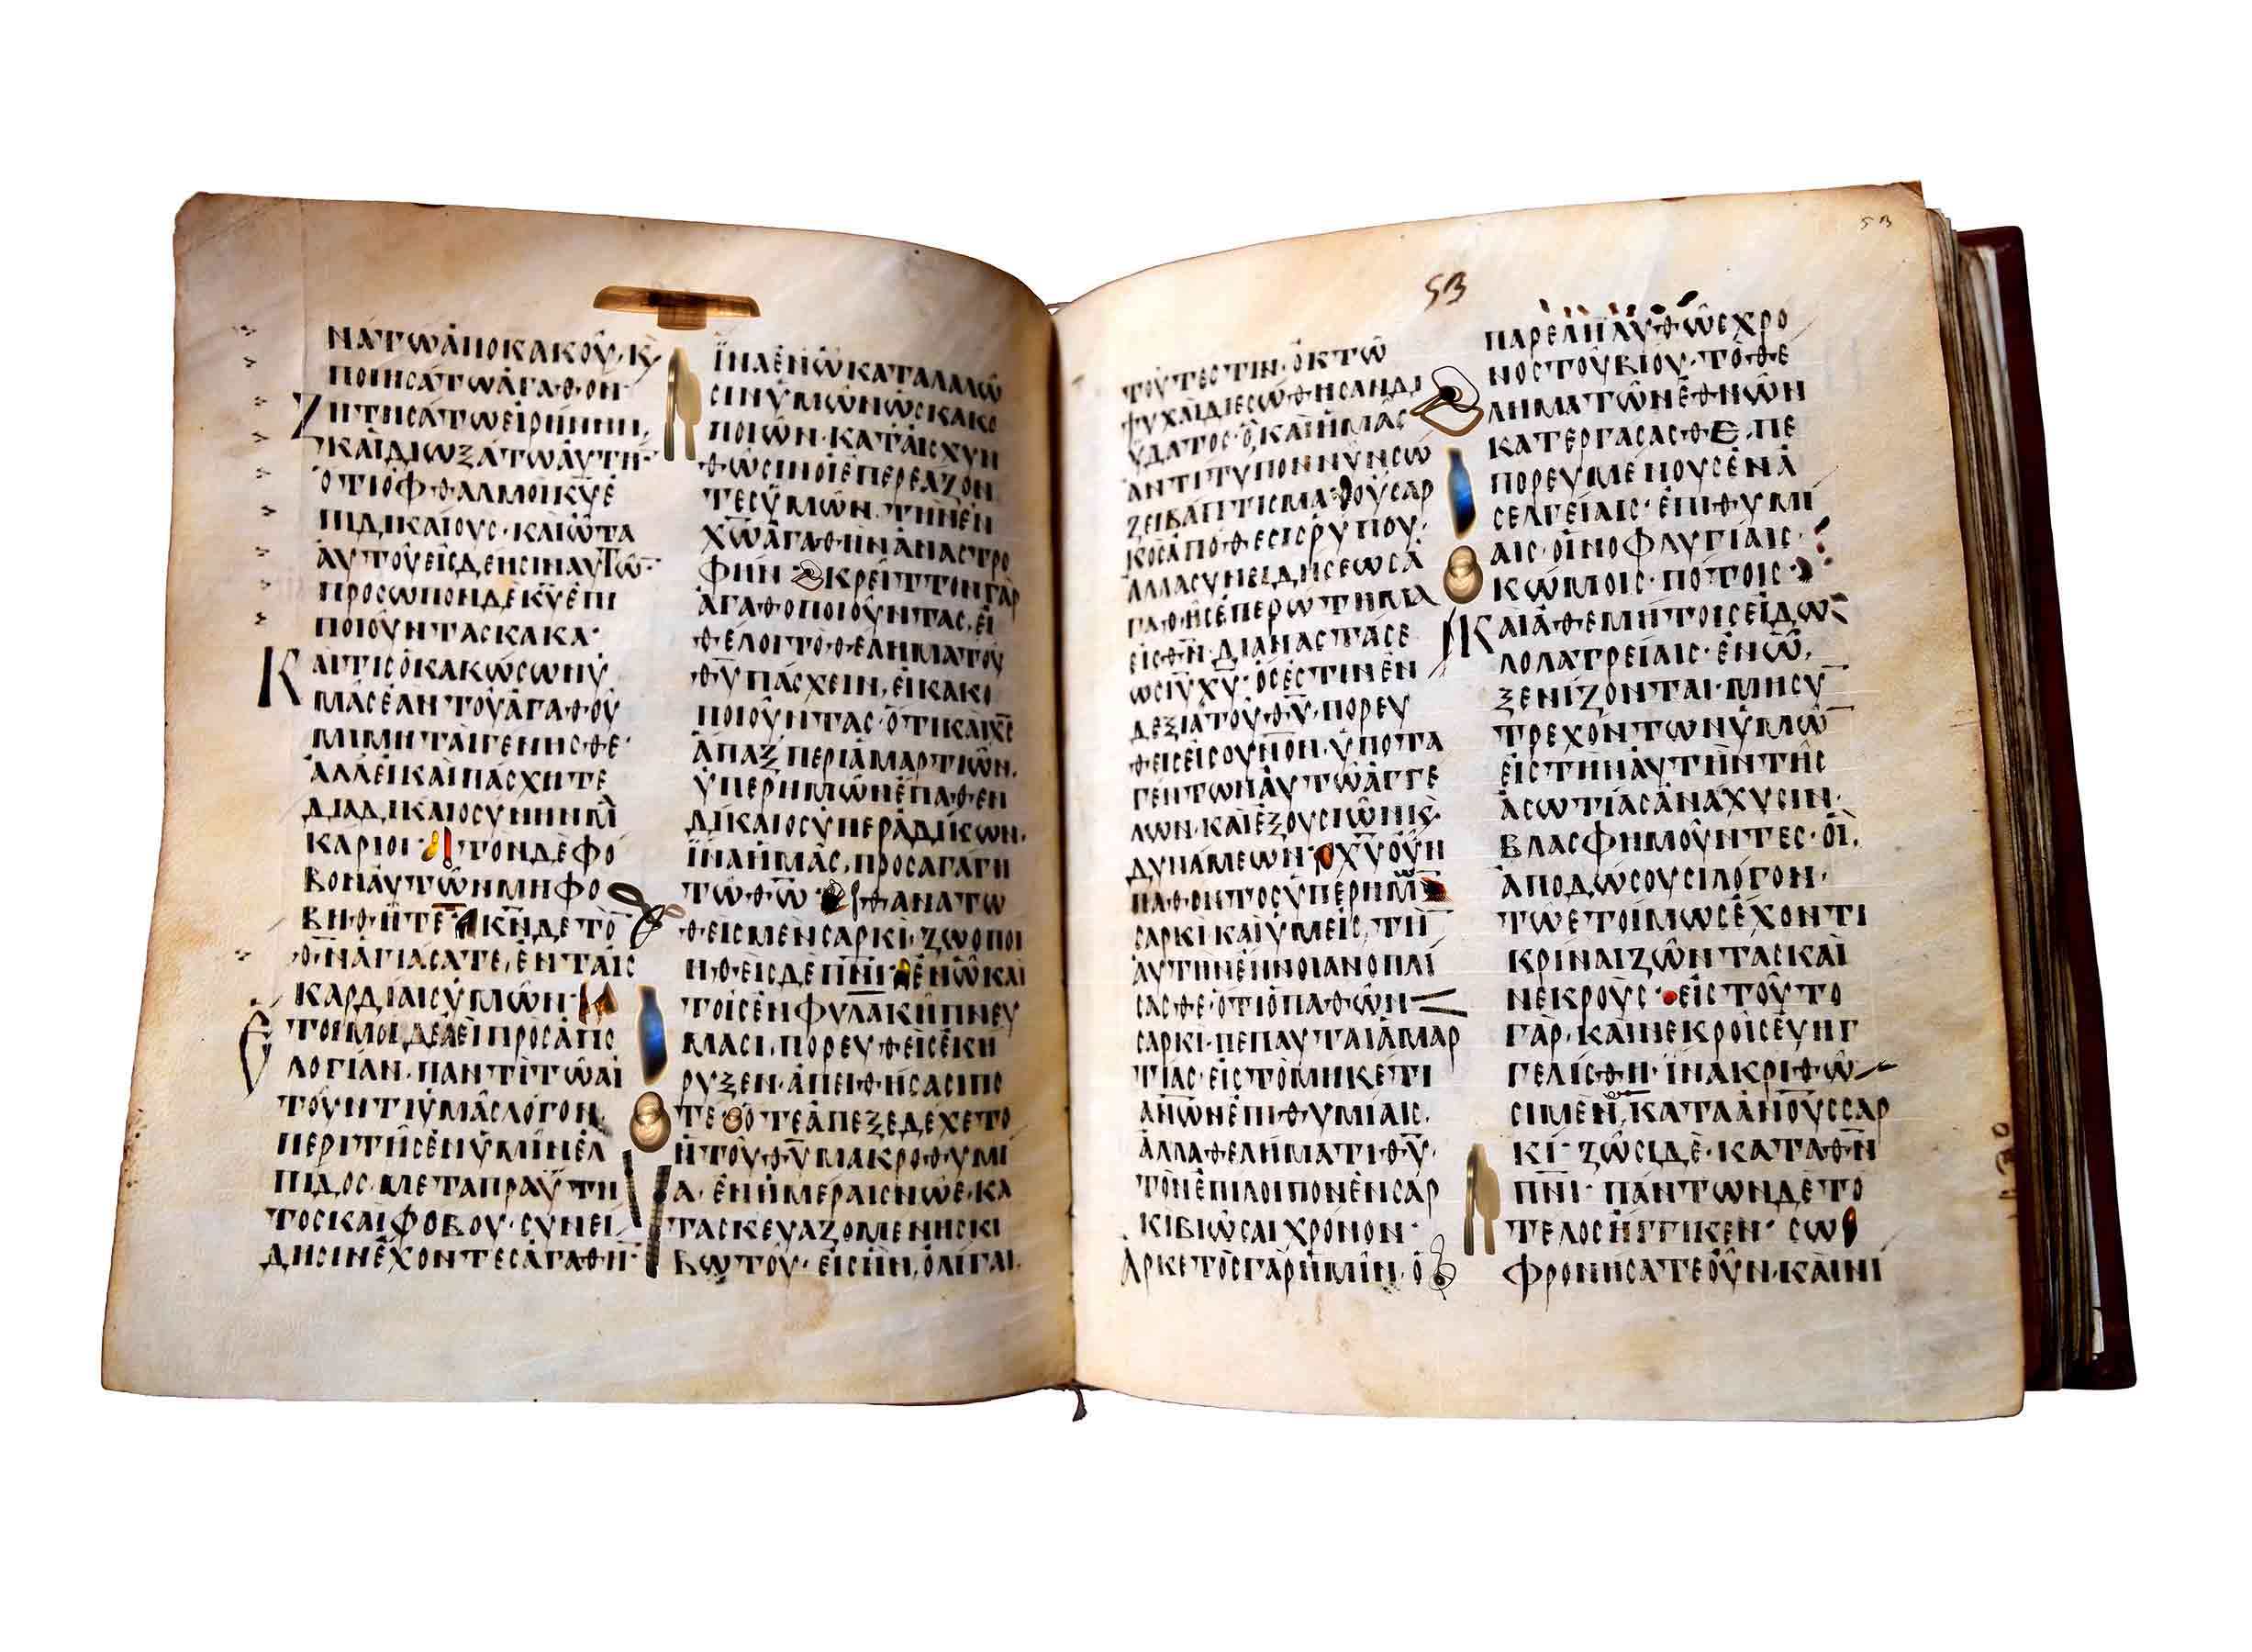 ΝΑΤΩΑΠΟΚΑΚΟΥ·Κ
ΠΟΙΗСΑΤΩΑΓΑΘΟΝ·
ΖΗΤΗСΑΤΩΕΙΡΗΝΗΝ,
ΚΑΙΔΙΩΞΑΤΩΑΥΤΗ·
ΟΤΙΟΦΘΑΛΜΟΙΚΥΕ
ΠΙΔΙΚΑΙΟΥС·ΚΑΙΩΤΑ
ΑΥΤΟΥΕΙСΔΕΗСΙΝΑΥΤΩ·
ΠΡΟСΩΠΟΝΔΕΚΥΕΠΙ
ΠΟΙΟΥΝΤΑСΚΑΚΑ·
ΚΑΙΤΙСΟΚΑΚΩСΩΝΥ
ΜΑСΕΑΝΤΟΥΑΓΑΘΟΥ
ΜΙΜΗΤΑΙΓΕΝΗСΘΕ·
ΑΛΛΕΙΚΑΙΠΑСΧΗΤΕ
ΔΙΑΔΙΚΑΙΟСΥΝΗΝΜ
ΚΑΡΙΟΙ·ΤΟΝΔΕΦΟ
ΒΟΝΑΥΤΩΝΜΗΦΟ
ΒΗΘΗΤΕ ΚΝΔΕΤΟ
ΘΝΑΓΙΑСΑΤΕ,ΕΝΤΑΙС
ΚΑΡΔΙΑΙСΥΜΩΝ·
ΕΤΟΙΜΟΙΔΕΑΕΙΠΡΟСΑΠΟ
ΛΟΓΙΑΝ·ΠΑΝΤΙΤΩΑΙ
ΤΟΥΝΤΙΥΜΑСΛΟΓΟΝ
ΠΕΡΙΤΗСΕΝΥΜΙΝΕΛ
ΠΙΔΟС·ΜΕΤΑΠΡΑΥΤΗ
ΤΟСΚΑΙΦΟΒΟΥ·СΥΝΕΙ
ΔΗСΙΝΕΧΟΝΤΕСΑΓΑΘΗ·
ΙΝΑΕΝΩΚΑΤΑΛΑΛΩ
СΙΝΥΜΩΝΩСΚΑΚΟ
ΠΟΙΩΝ·ΚΑΤΑΙСΧΥΝ
ΘΩСΙΝΟΙΕΠΕΡΕΑΖΟΝ
ΤΕСΥΜΩΝ·ΤΗΝΕΝ
ΧΩΑΓΑΘΗΝΑΝΑСΤΡΟ
ΦΗΝ ΚΡΕΙΤΤΟΝΓΑΡ
ΑΓΑΘΟΠΟΙΟΥΝΤΑС,ΕΙ
ΘΕΛΟΙΤΟΘΕΛΗΜΑΤΟΥ
ΘΥΠΑСΧΕΙΝ,ΕΙΚΑΚΟ
ΠΟΙΟΥΝΤΑС·ΟΤΙΚΑΙΧС
ΑΠΑΞΠΕΡΙΑΜΑΡΤΙΩΝ,
ΥΠΕΡΗΜΩΝΕΠΑΘΕΝ
ΔΙΚΑΙΟСΥΠΕΡΑΔΙΚΩΝ,
ΙΝΑΗΜΑС,ΠΡΟСΑΓΑΓΗ
ΤΩΘΩ ΘΑΝΑΤΩ
ΘΕΙСΜΕΝСΑΡΚΙ·ΖΩΟΠΟΙ
ΗΘΕΙСΔΕΠΝΙ·ΕΝΩΚΑΙ
ΤΟΙСΕΝΦΥΛΑΚΗΠΝΕΥ
ΜΑСΙ,ΠΟΡΕΥΘΕΙСΕΚΗ
ΡΥΞΕΝ·ΑΠΕΙΘΗСΑСΙΠΟ
ΤΕ·ΟΤΕΑΠΕΞΕΔΕΧΕΤΟ
ΗΤΟΥΘΥΜΑΚΡΟΘΥΜΙ
Α·ΕΝΗΜΕΡΑΙСΝΩΕ·ΚΑ
ΤΑСΚΕΥΑΖΟΜΕΝΗСΚΙ
ΒΩΤΟΥ·ΕΙСΗΝ,ΟΛΙΓΑΙ,
53
53
ΤΟΥΤΕСΤΙΝ·ΟΚΤΩ
ΨΥΧΑΙΔΙΕСΩΘΗСΑΝΔΙ
ΥΔΑΤΟС·Ο,ΚΑΙΗΜΑС
ΑΝΤΙΤΥΠΟΝΝΥΝСΩ
ΖΕΙΒΑΠΤΙСΜΑ·ΟΥСΑΡ
ΚΟСΑΠΟΘΕСΙСΡΥΠΟΥ·
ΑΛΛΑСΥΝΕΙΔΗСΕΩСΑ
ΓΑΘΗСΕΠΕΡΩΤΗΜΑ
ΕΙСΘΝ·ΔΙΑΝΑСΤΑСΕ
ΩСΙΥΧΥ·ΟСΕСΤΙΝΕΝ
ΔΕΞΙΑΤΟΥΘΥ·ΠΟΡΕΥ
ΘΕΙСΕΙСΟΥΝΟΝ·ΥΠΟΤΑ
ΓΕΝΤΩΝΑΥΤΩΑΓΓΕ
ΛΩΝ·ΚΑΙΕΞΟΥСΙΩΝΚ
ΔΥΝΑΜΕΩΝ·ΧΥΟΥΝ
ΠΑΘΟΝΤΟСΥΠΕΡΗΜ
СΑΡΚΙ·ΚΑΙΥΜΕΙС,ΤΗ
ΑΥΤΗΝΕΝΝΟΙΑΝΟΠΛΙ
СΑСΘΕ·ΟΤΙΟΠΑΘΩΝ
СΑΡΚΙ·ΠΕΠΑΥΤΑΙΑΜΑΡ
ΤΙΑС·ΕΙСΤΟΜΗΚΕΤΙ
ΑΝΩΝΕΠΙΘΥΜΙΑΙС,
ΑΛΛΑΘΕΛΗΜΑΤΙΘΥ·
ΤΟΝΕΠΙΛΟΙΠΟΝΕΝСΑΡ
ΚΙΒΙΩСΑΙΧΡΟΝΟΝ·
ΑΡΚΕΤΟСΓΑΡΗΜΙΝ·Ο
ΠΑΡΕΛΗΛΥΘΩСΧΡΟ
ΝΟСΤΟΥΒΙΟΥ·ΤΟΘΕ
ΛΗΜΑΤΩΝΕΘΝΩΝ
ΚΑΤΕΡΓΑСΑСΘΕ·ΠΕ
ΠΟΡΕΥΜΕΝΟΥСΕΝΑ
СΕΛΓΕΙΑΙС·ΕΠΙΘΥΜΙ
ΑΙС·ΟΙΝΟΦΛΥΓΙΑΙС·
ΚΩΜΟΙС·ΠΟΤΟΙС·
ΚΑΙΑΘΕΜΗΤΟΙСΕΙΔΩ
ΛΟΛΑΤΡΕΙΑΙС·ΕΝΩ,
ΞΕΝΙΖΟΝΤΑΙ·ΜΗСΥ
ΤΡΕΧΟΝΤΩΝΥΜΩ
ΕΙСΤΗΝΑΥΤΗΝΤΗС
ΑСΩΤΙΑСΑΝΑΧΥСΙΝ·
ΒΛΑСΦΗΜΟΥΝΤΕС·ΟΙ,
ΑΠΟΔΩСΟΥСΙΛΟΓΟΝ·
ΤΩΕΤΟΙΜΩСΕΧΟΝΤΙ
ΚΡΙΝΑΙΖΩΝΤΑСΚΑΙ
ΝΕΚΡΟΥС·ΕΙСΤΟΥΤΟ
ΓΑΡ,ΚΑΙΝΕΚΡΟΙСΕΥΗΓ
ΓΕΛΙСΘΗ·ΙΝΑΚΡΙΘΩ
СΙΜΕΝ,ΚΑΤΑΑΝΟΥССΑΡ
ΚΙ·ΖΩСΙΔΕ·ΚΑΤΑΘΝ
ΠΝΙ·ΠΑΝΤΩΝΔΕΤΟ
ΤΕΛΟСΗΓΓΙΚΕΝ·СΩ
ΦΡΟΝΗСΑΤΕΟΥΝ·ΚΑΙΝΙ